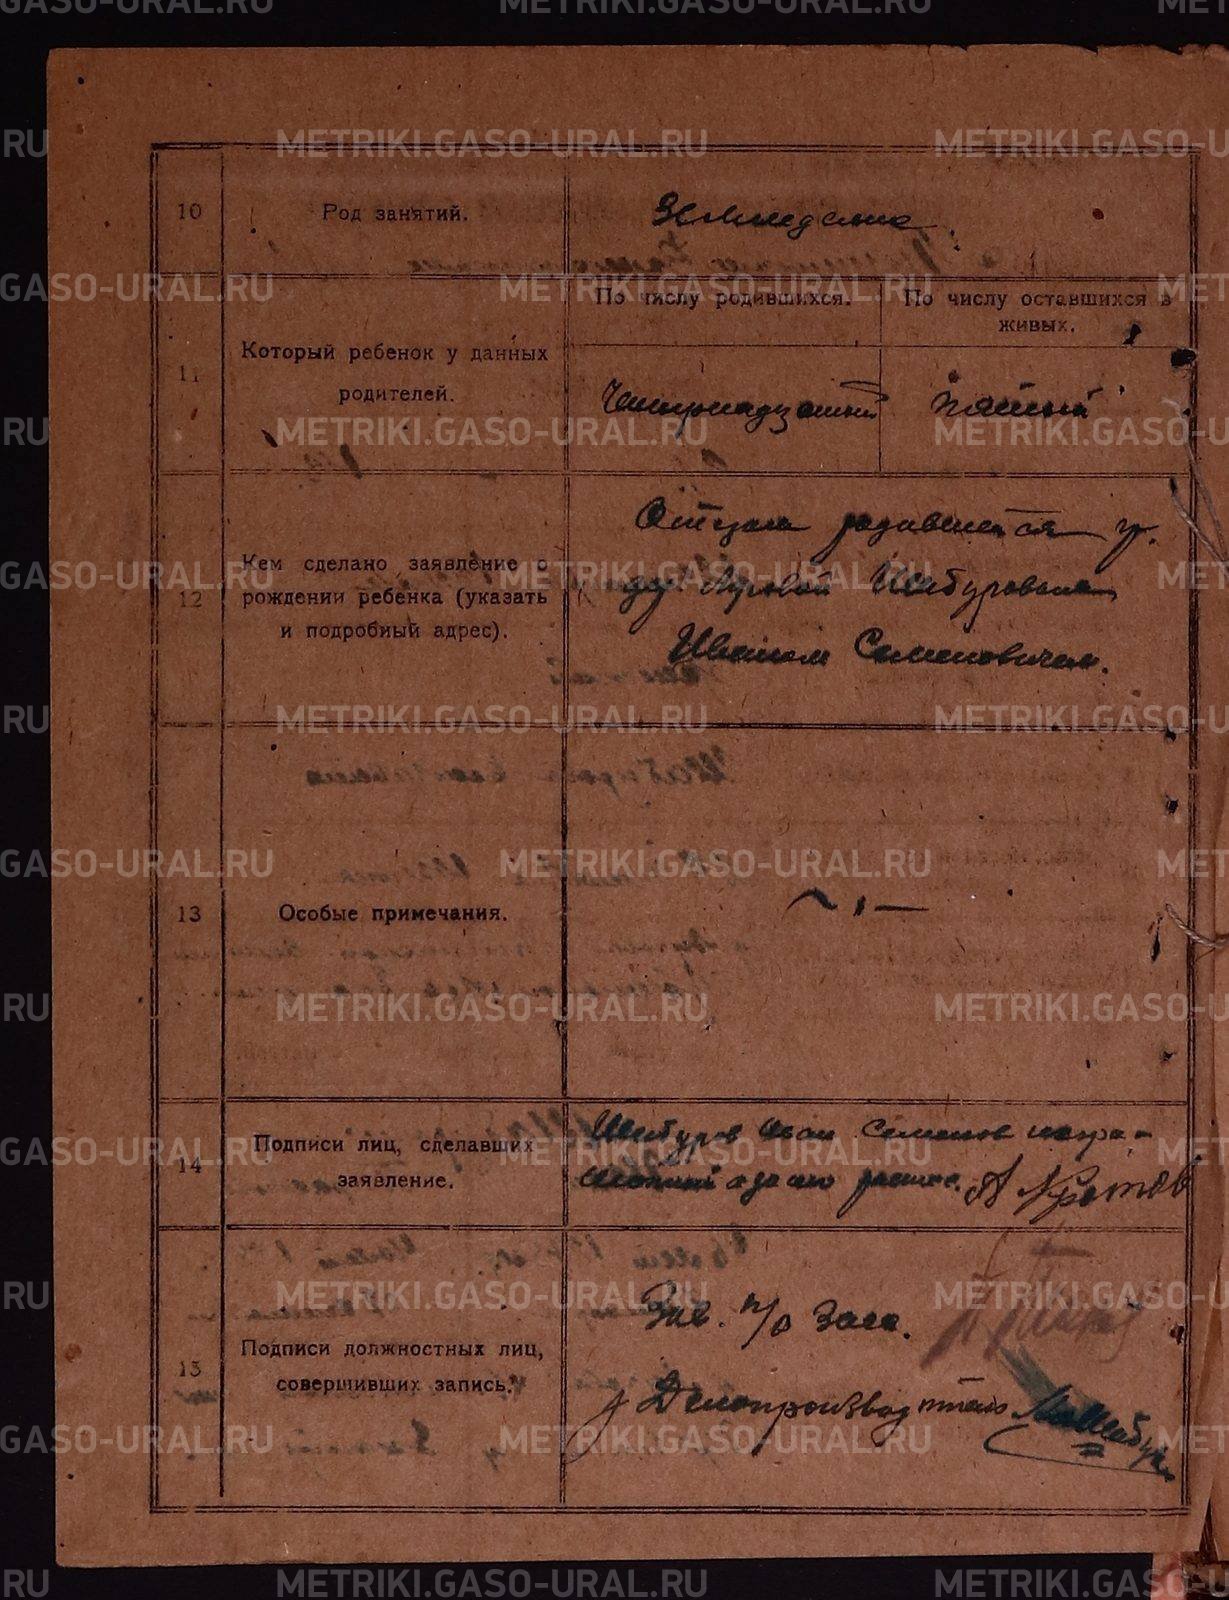 METRIKI.GASO-URAL.RU
10
Род занятий.
Земледелие.
11
Который ребенок у данных
родителей.
По числу родившихся.
По числу оставшихся в
живых.
Четырнадцатый
Пятый
12
Кем сделано заявление о
рождении ребенка (указать
и подробный адрес).
Отцом родившегося гр.
дер. Шебуровым
Иваном Семеновичем.
13
Особые примечания.
14
Подписи лиц, сделавших
заявление.
Шебуров Иван Семенов негра-
мотный а за него роспис. Кротов
15
Подписи должностных лиц,
совершивших запись.
Зав. п/о Загс.
Делопроизводитель